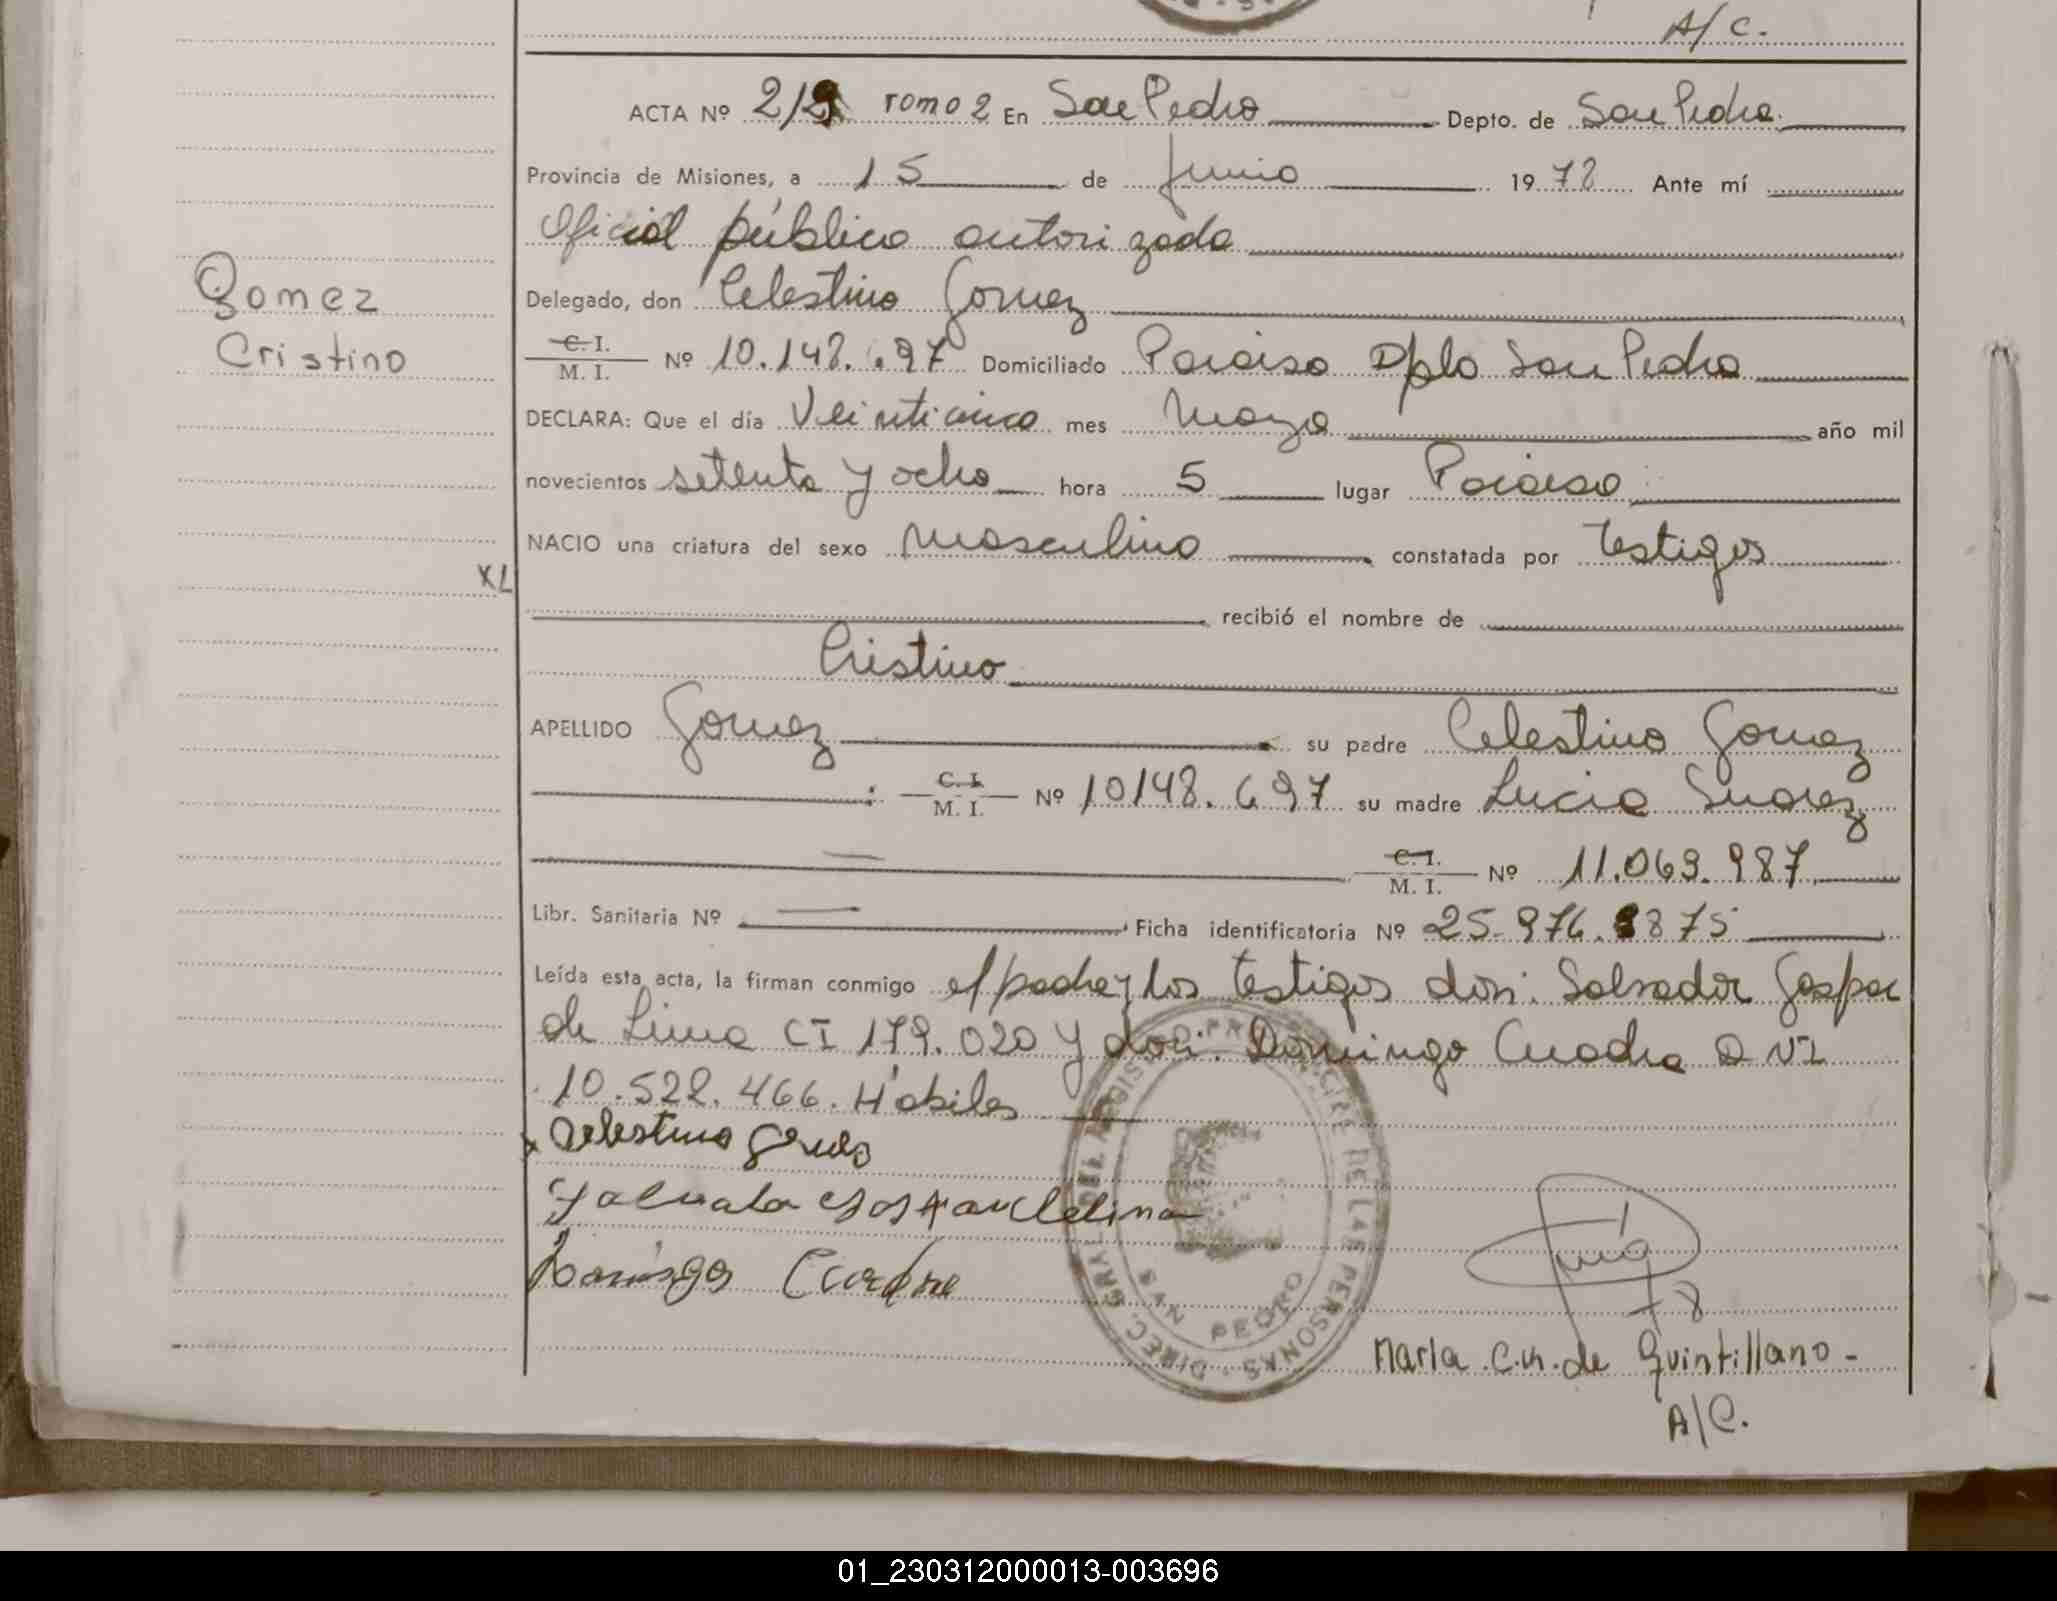 A/C.
ACTA Nº 2/9 TOMO 2 En San Pedro Depto. de San Pedro.
Provincia de Misiones, a 15 de Junio 1978 Ante mí
Oficial público autorizada
Gomez
Cristino
Delegado, don Celestino Gomez
C. I. / M. I. Nº 10.148.697 Domiciliado Paraiso Dpto San Pedro
DECLARA: Que el día Veinticinco mes Mayo año mil
novecientos setenta y ocho hora 5 lugar Paraiso
NACIO una criatura del sexo Masculino constatada por testigos
XL
recibió el nombre de
Cristino
APELLIDO Gomez su padre Celestino Gomez
C. I. / M. I. Nº 10148.697 su madre Lucia Suarez
C. I. / M. I. Nº 11.069.987
Libr. Sanitaria Nº — Ficha identificatoria Nº 25.976.875
Leída esta acta, la firman conmigo el padre y los testigos don: Salvador Gaspar
de Lima CI 179.020 y don: Domingo Cuadra D N I
10.522.466. Hábiles
x Celestino
Domingo
DIREC. GRAL. DEL REGISTRO PROVINCIAL DE LAS PERSONAS
SAN PEDRO
Maria C.M. de Quintillano -
A/C.
01_230312000013-003696